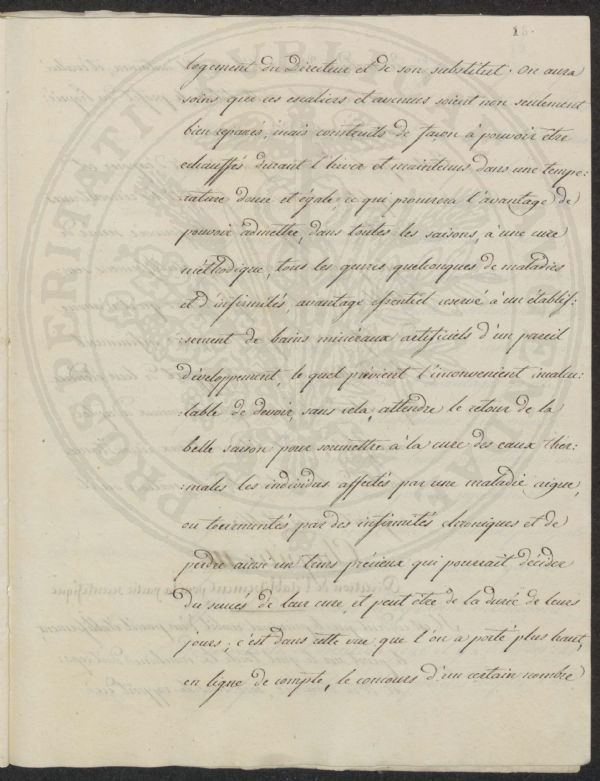 18.
logement du Directeur et de son substitut. On aura
soins que ces escaliers et avenues soient non seulement
bien reparés, mais construits de façon à pouvoir etre
echauffés durant l'hiver et maintenus dans une tempe:
rature douce et égale ce qui procurera l'avantage de
pouvoir admettre, dans toutes les saisons, à une cure
méthodique, tous les genres quelconques de maladies
et d'infirmités, avantage essentiel reservé à un établis:
:sement de bains minéraux artificiels d'un pareil
développement, le quel prévient l'inconvenient incalcu:
:lable de devoir, sans cela, attendre le retour de la
belle saison pour soumettre à la cure des eaux ther:
:males les individus affectés par une maladie aigue,
ou tourmentés par des infirmités chroniques et de
perdre ainsi un tems précieux qui pourrait décider
du succes de leur cure, et peut être de la durée de leurs
jours; c'est dans cette vue que l'on a porté plus haut,
en ligne de compte, le concours d'un certain nombre